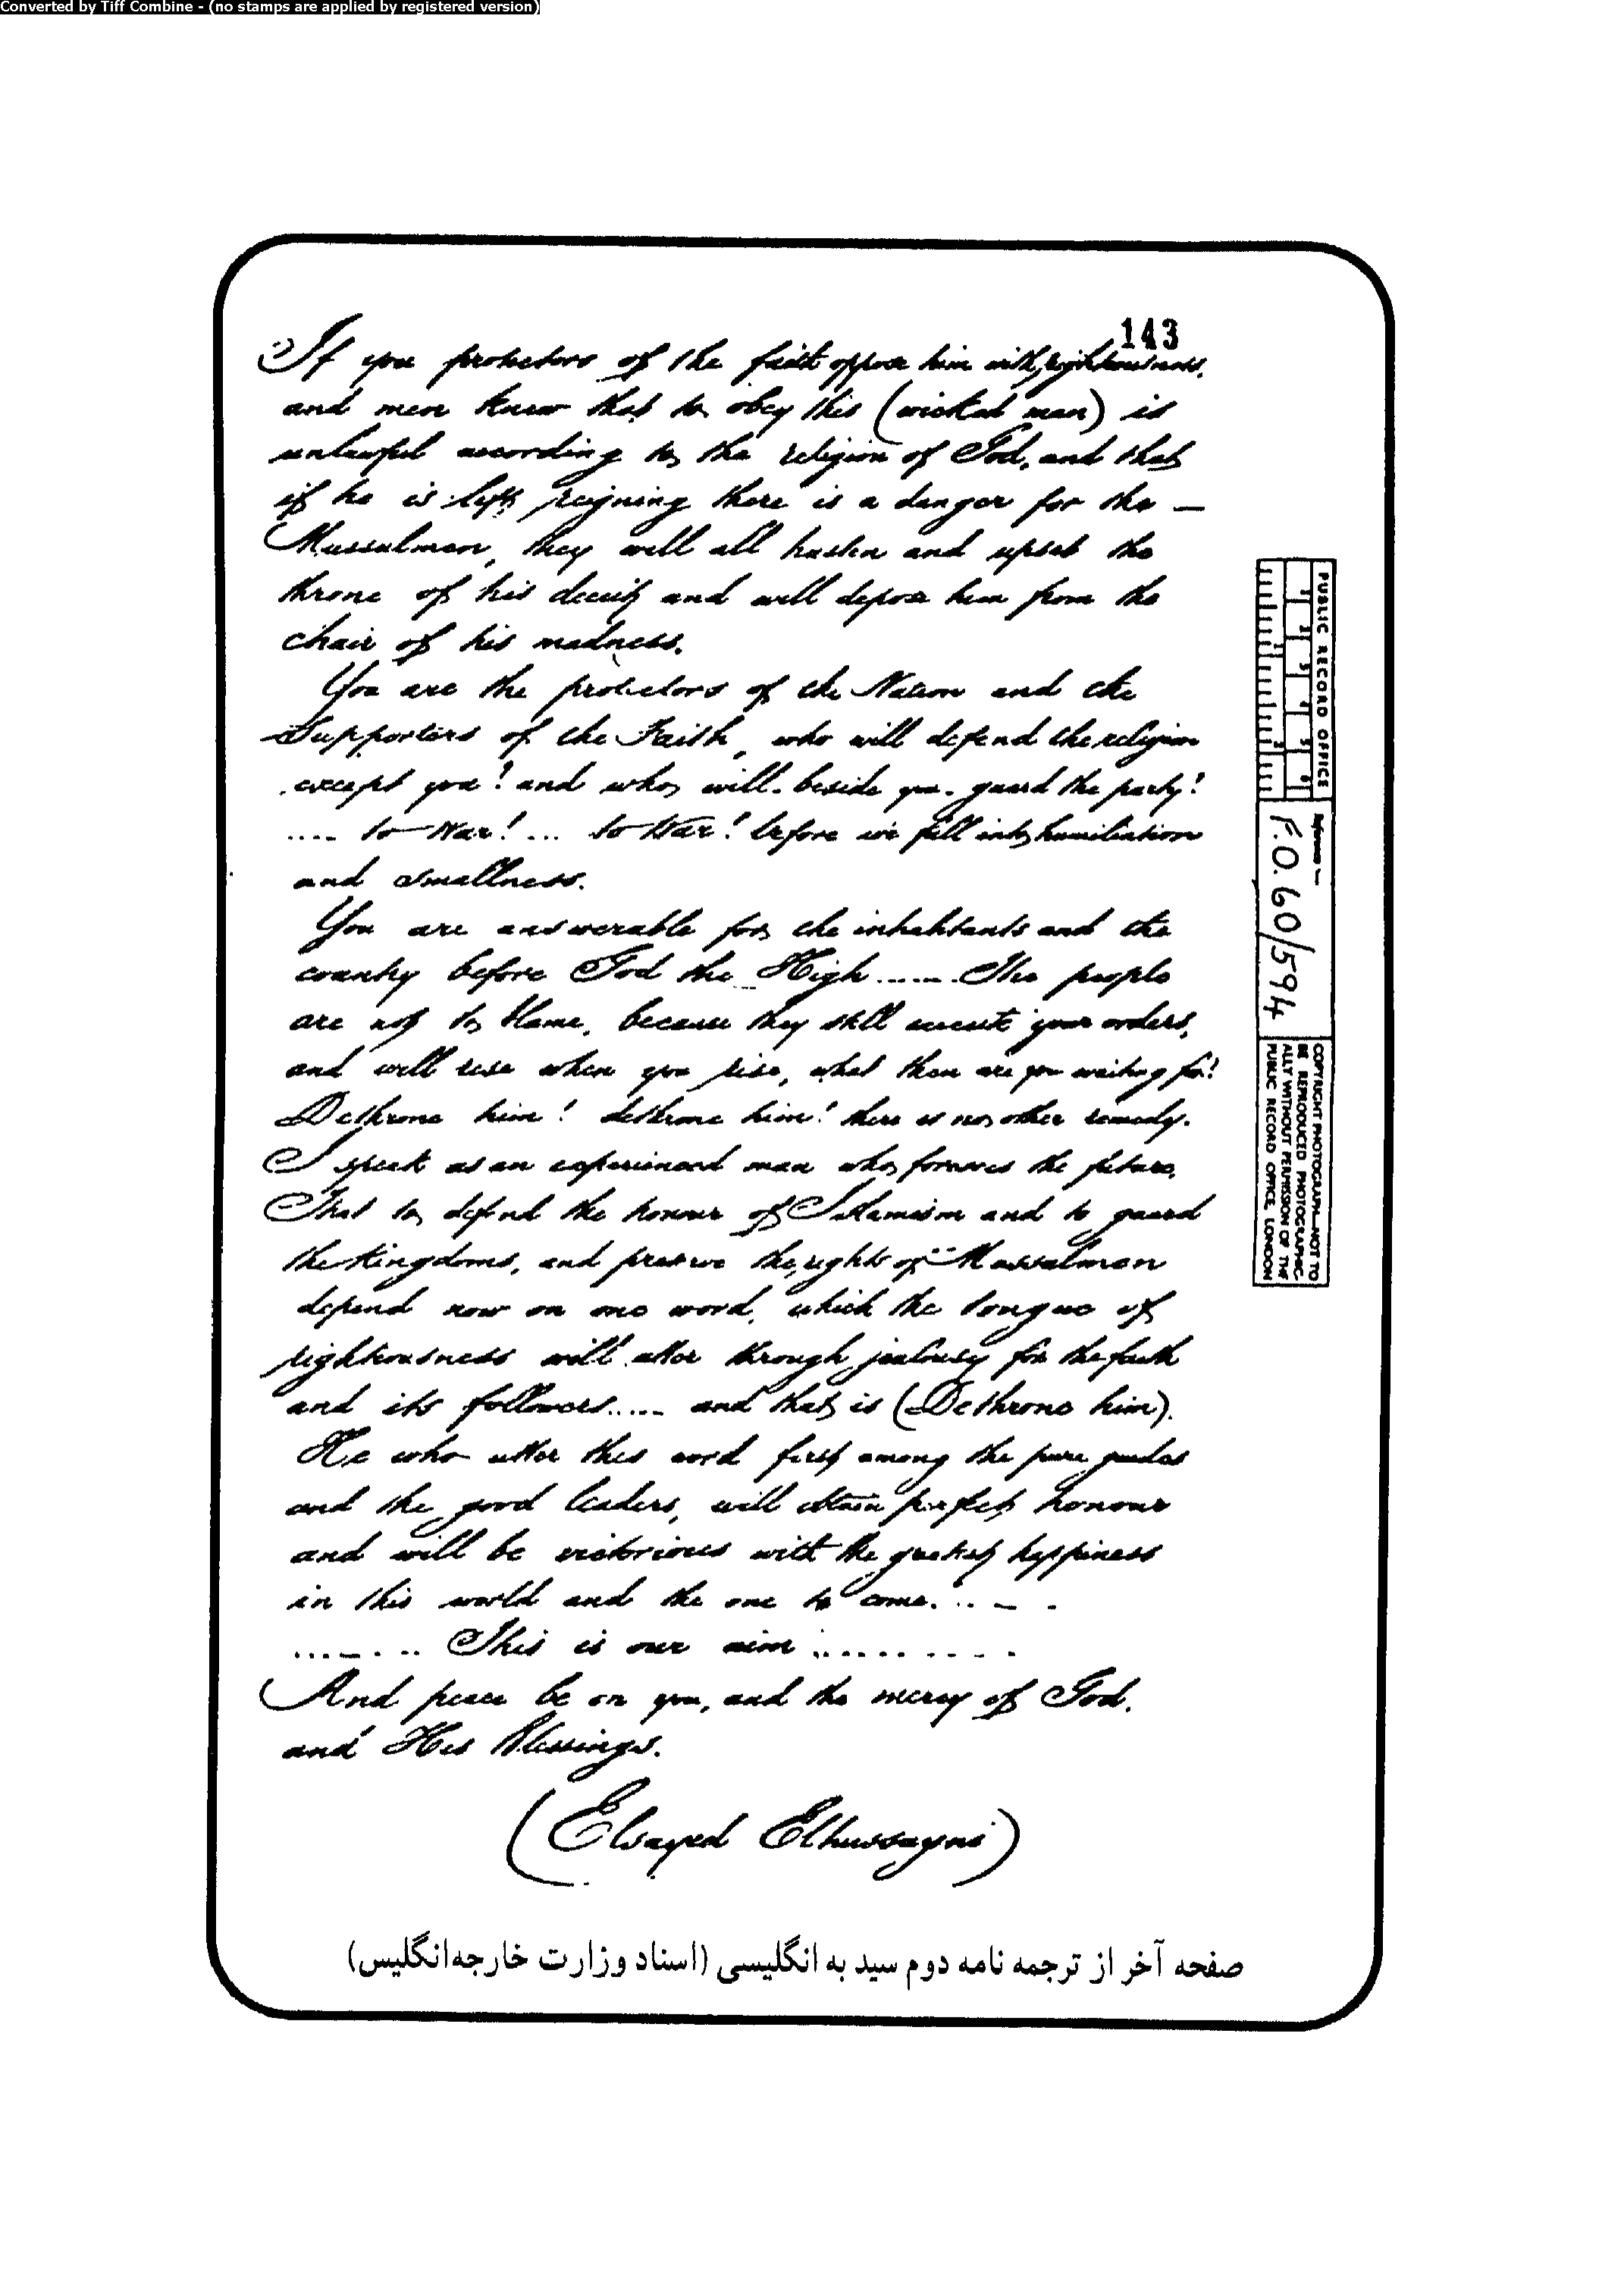 Converted by Tiff Combine - (no stamps are applied by registered version)
143
If you protectors of the faith oppose him with righteousness,
and men knew that to obey this (wicked man) is
unlawful according to the religion of God, and that
if he is left reigning there is a danger for the —
Mussulmen, they will all hasten and upset the
throne of his deceit and will depose him from the
chair of his madness.
You are the protectors of the Nation and the
Supporters of the Faith, who will defend the religion
except you? and who will - beside you - guard the party?
.... to War! ... to War! before we fall into humiliation
and smallness.
You are answerable for the inhabitants and the
country before God the High ....... The people
are not to blame, because they still execute your orders,
and will rise when you rise, what then are you waiting for?
Dethrone him! dethrone him! there is no other remedy.
I speak as an experienced man who foresees the future,
That to defend the honour of Islamism and to guard
the Kingdoms, and preserve the rights of Mussulmen
depend now on one word, which the tongue of
righteousness will utter through jealousy for the faith
and its followers..... and that is (Dethrone him).
He who utter this word first among the pure guides
and the good leaders, will obtain perfect honour
and will be victorious with the greatest happiness
in this world and the one to come. .. – .
........ This is our aim ..........
And peace be on you, and the mercy of God.
and His Blessings.
(Elsayed Elhussayni)
PUBLIC RECORD OFFICE
1 2 3 4 5 6
1 2
Reference :-
F.O. 60/594
COPYRIGHT PHOTOGRAPH—NOT TO
BE REPRODUCED PHOTOGRAPHIC-
ALLY WITHOUT PERMISSION OF THE
PUBLIC RECORD OFFICE, LONDON
صفحه آخر از ترجمه نامه دوم سید به انگلیسی (اسناد وزارت خارجه انگلیس)